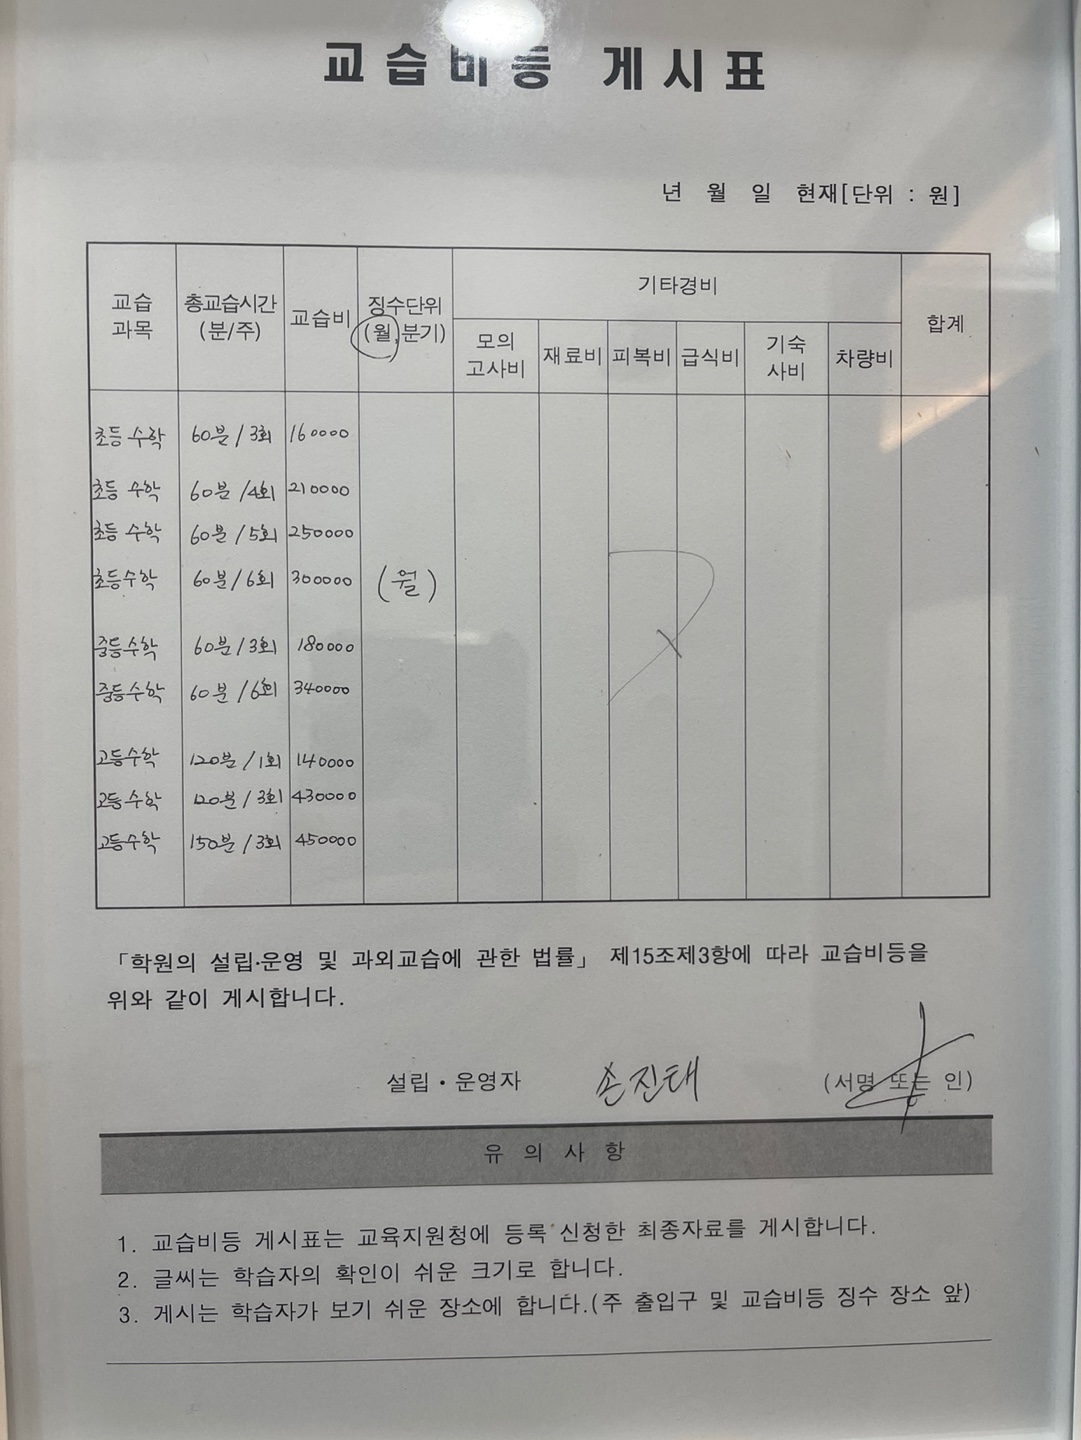 교습비등 게시표
년 월 일 현재[단위 : 원]
교습 과목 총교습시간 (분/주) 교습비 징수단위 (월,분기) 기타경비 합계
모의 고사비 재료비 피복비 급식비 기숙 사비 차량비
초등 수학 60분/3회 160000
초등 수학 60분/4회 210000
초등 수학 60분/5회 250000
초등수학 60분/6회 300000 (월)
중등수학 60분/3회 180000
중등수학 60분/6회 340000
고등수학 120분/1회 140000
고등수학 120분/3회 430000
고등수학 150분/3회 450000
「학원의 설립·운영 및 과외교습에 관한 법률」 제15조제3항에 따라 교습비등을
위와 같이 게시합니다.
설립·운영자 손진태 (서명 또는 인)
유 의 사 항
1. 교습비등 게시표는 교육지원청에 등록 신청한 최종자료를 게시합니다.
2. 글씨는 학습자의 확인이 쉬운 크기로 합니다.
3. 게시는 학습자가 보기 쉬운 장소에 합니다.(주 출입구 및 교습비등 징수 장소 앞)